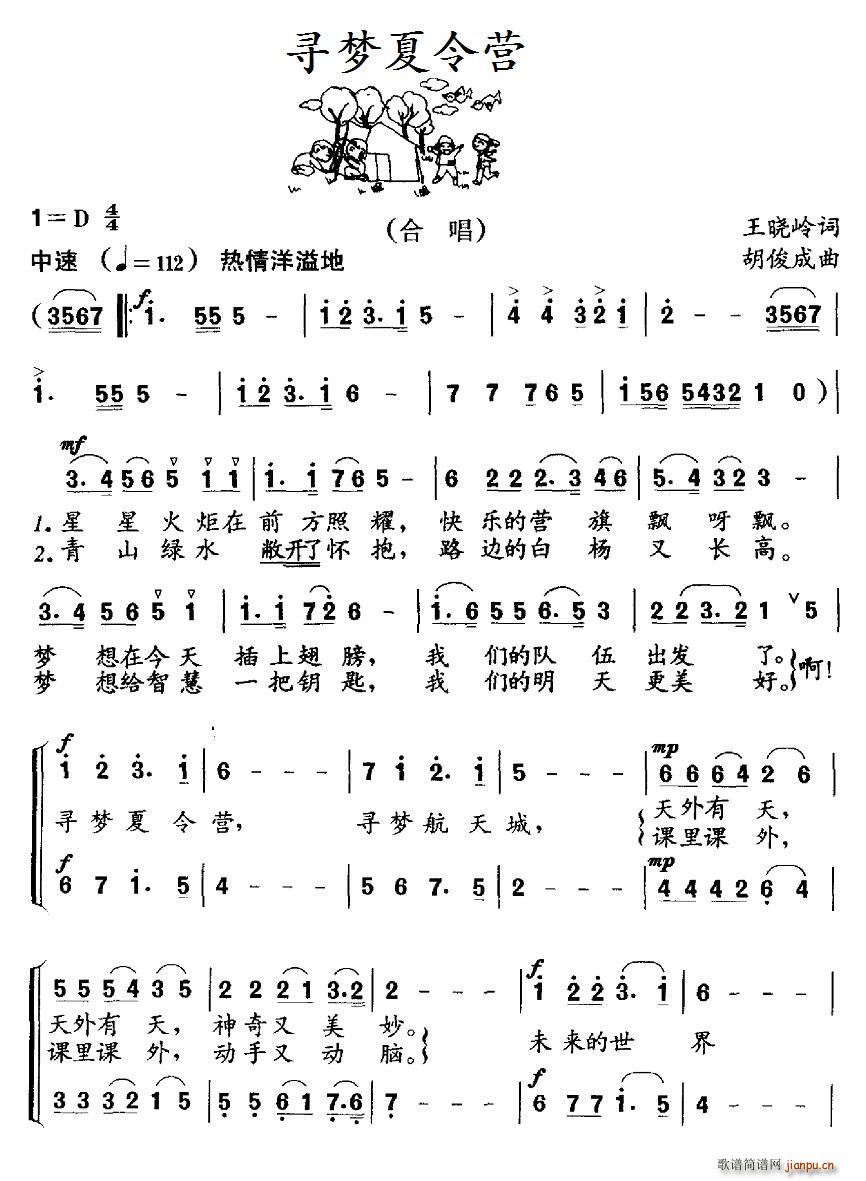 寻梦夏令营
1=D 4/4
(合 唱)
王晓岭词
中速 (♩=112) 热情洋溢地
胡俊成曲
f
(3567 ‖: i. 55 5 - | i 2 3. i 5 - | 4 4 3 2 i | 2 - - 3567 |
i. 55 5 - | i 2 3. i 6 - | 7 7 765 5 | i56 5432 1 0 )|
mf
3. 4 56 5 i i | i. i 76 5 - | 6 22 2. 3 46 | 5. 4 32 3 - |
1. 星 星 火 炬在 前 方照 耀, 快 乐的营 旗 飘 呀飘。
2. 青 山 绿 水 敞开了怀 抱, 路 边的白 杨 又 长 高。
3. 4 5 6 5 1 | i. i 72 6 - | i. 6 55 6. 5 3 | 2 2 3. 2 1 ∨ 5 |
梦 想在今 天 插 上翅 膀, 我 们的队 伍 出发 了。 啊!
梦 想给智 慧 一 把钥 匙, 我 们的明 天 更美 好。
f mp
i 2 3. i | 6 - - - | 7 i 2. i | 5 - - - | 6 6 6 4 2 6 |
寻梦夏 令营, 寻梦航 天城, 天外有 天,
课里课 外,
f mp
6 7 i. 5 | 4 - - - | 5 6 7. 5 | 2 - - - | 4 4 4 2 6 4 |
f
5 5 5 4 3 5 | 2 2 2 1 3. 2 | 2 - - - | i 2 2 3. i | 6 - - - |
天外有 天, 神奇又 美 妙。 未 来的世 界
课里课 外, 动手又 动 脑。
f
3 3 3 2 1 5 | 5 5 6 1 7. 6 | 7 - - - | 6 7 7 i. 5 | 4 - - - |
歌谱简谱网 jianpu.cn